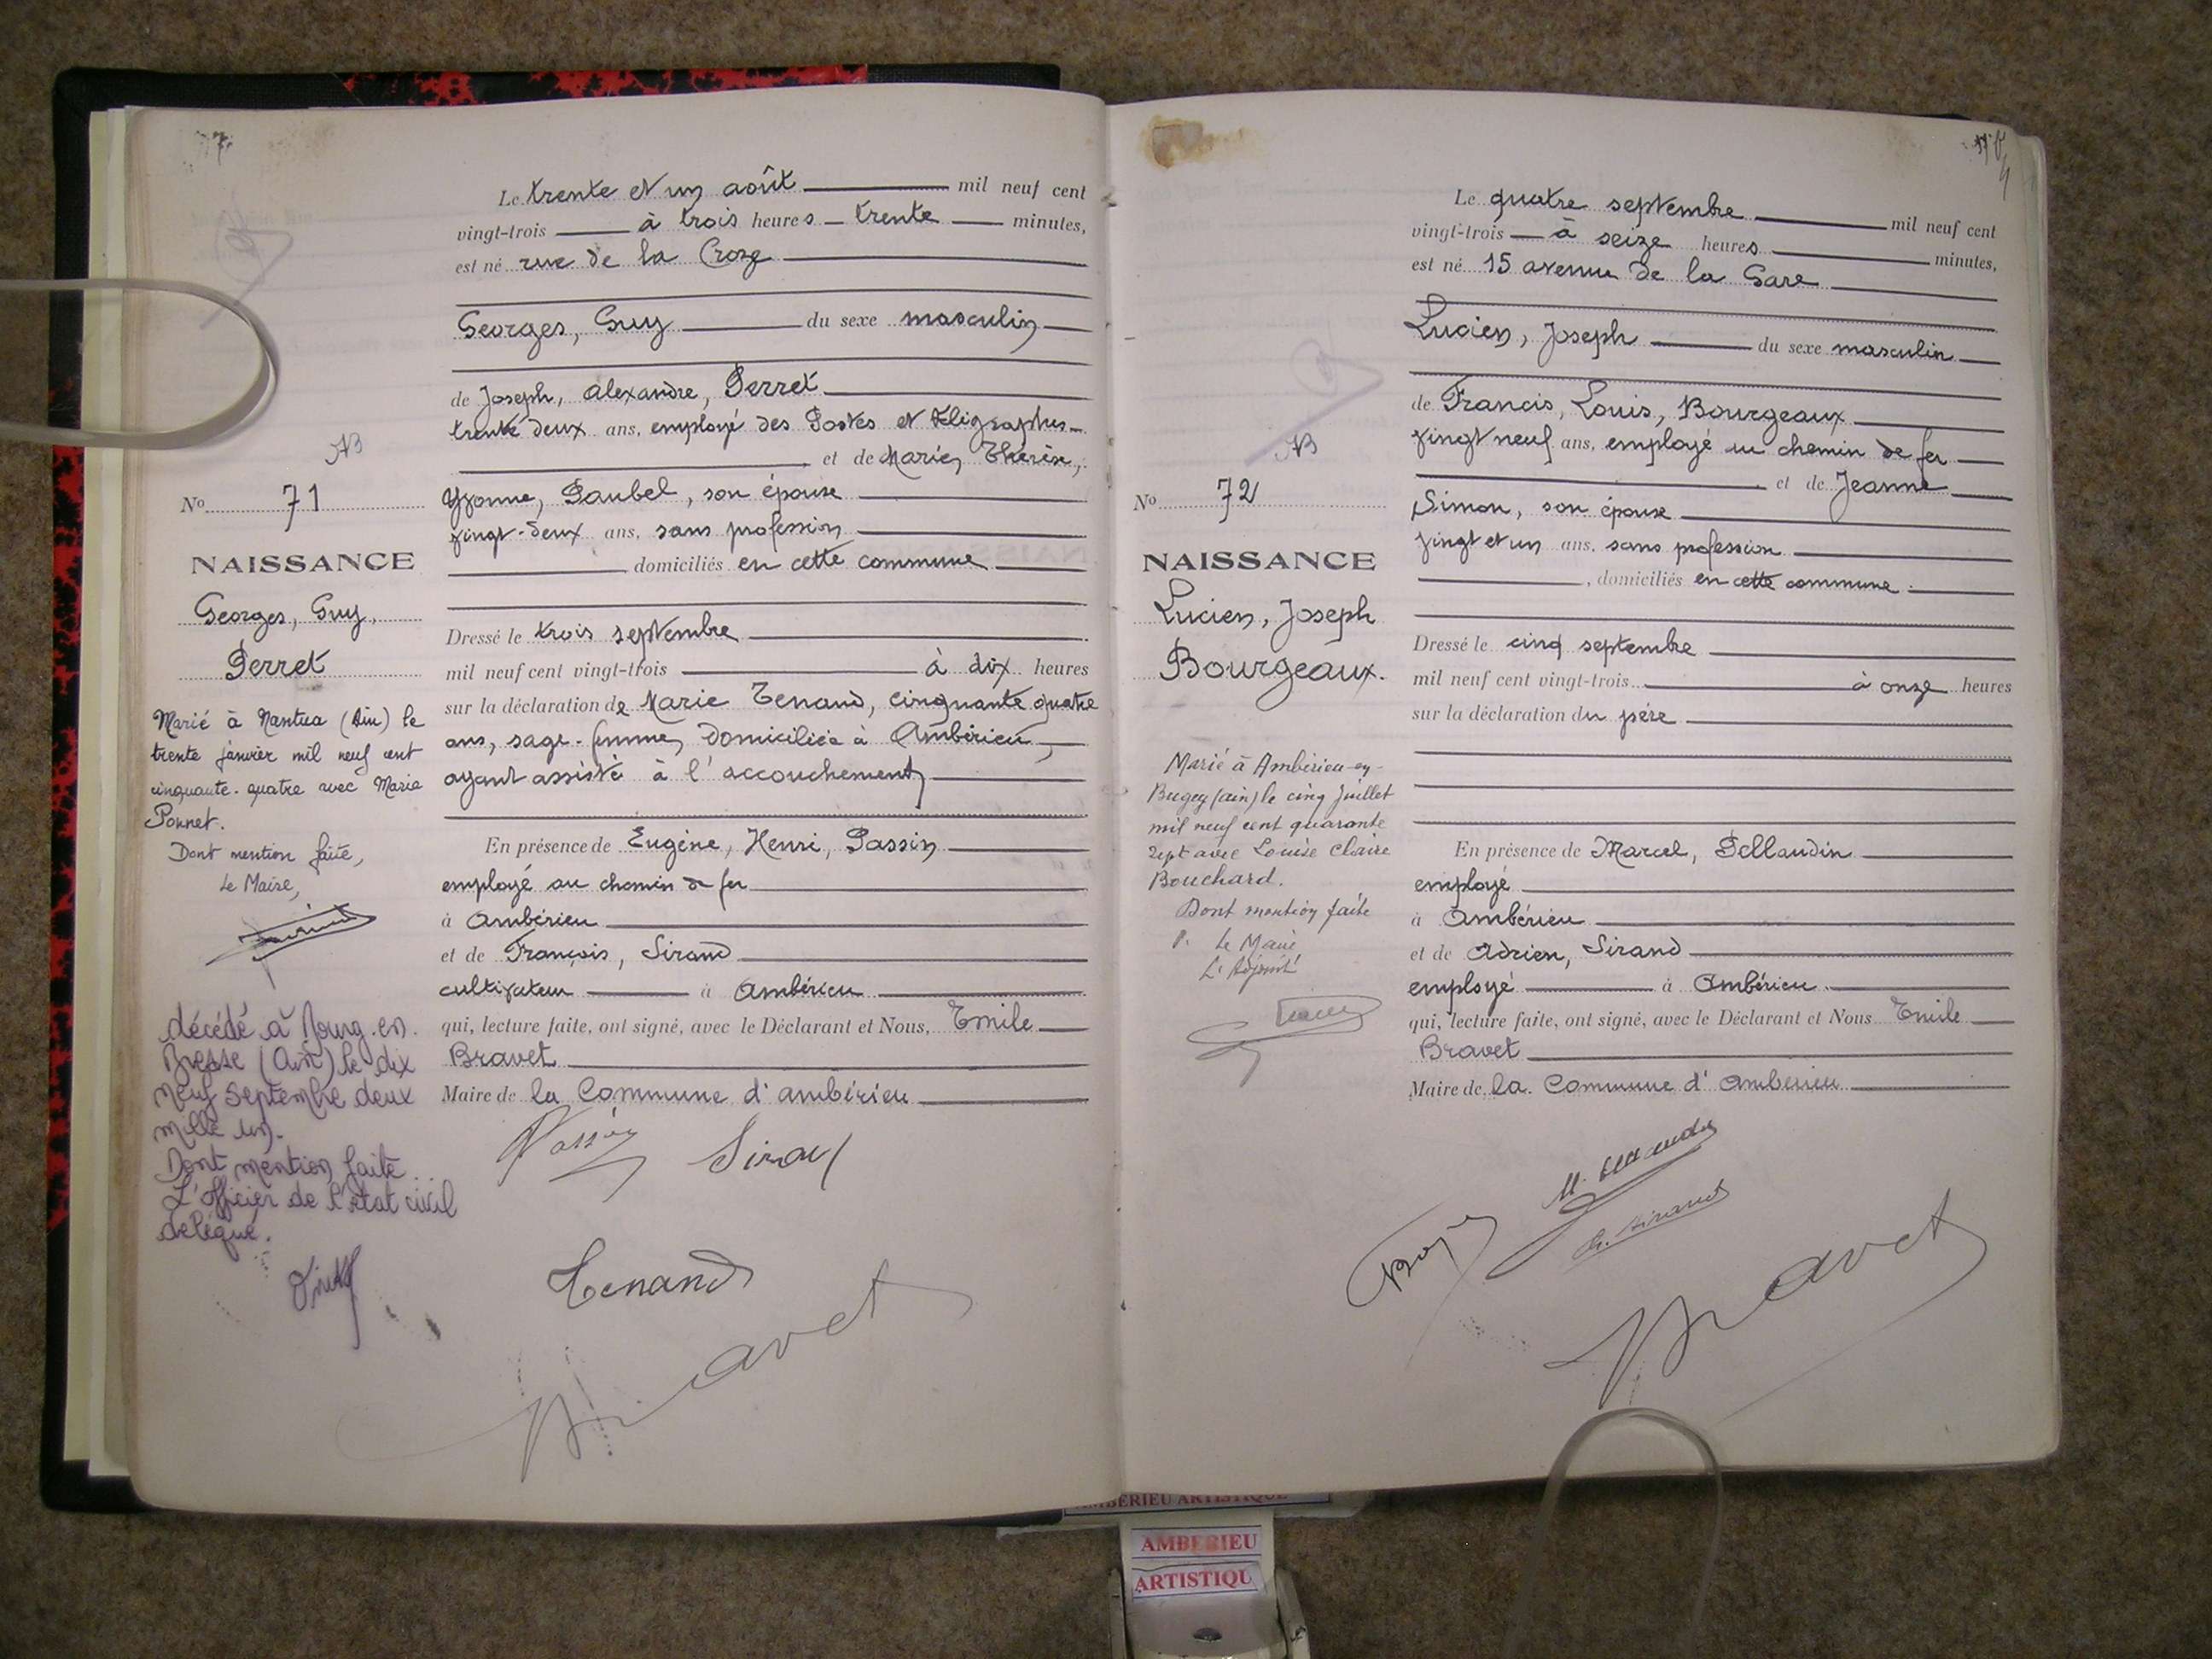 Le trente et un août mil neuf cent
vingt-trois à trois heures trente minutes,
est né rue de la Croze
Georges, Guy du sexe masculin
de Joseph, Alexandre, Perret
trente deux ans, employé des Postes et Télégraphes
et de Marie, Thérèse,
Yvonne, Paubel, son épouse
vingt-deux ans, sans profession
domiciliés en cette commune
Dressé le trois septembre
mil neuf cent vingt-trois à dix heures
sur la déclaration de Marie Tenand, cinquante quatre
ans, sage-femme, domiciliée à Ambérieu,
ayant assisté à l'accouchement
En présence de Eugène, Henri, Passin
employé au chemin de fer
à Ambérieu
et de François, Sirand
cultivateur à Ambérieu
qui, lecture faite, ont signé, avec le Déclarant et Nous, Emile
Bravet
Maire de la Commune d'Ambérieu
Sirand
Tenand
Bravet
AB
No 71
NAISSANCE
Georges, Guy,
Perret
Marié à Nantua (Ain) le
trente janvier mil neuf cent
cinquante-quatre avec Marie
Ponnet.
Dont mention faite,
Le Maire,
décédé à Bourg-en-
Bresse (Ain) le dix
neuf septembre deux
mille un.
Dont mention faite
L'officier de l'état civil
délégué.
Le quatre septembre mil neuf cent
vingt-trois à seize heures minutes,
est né 15 avenue de la Gare
Lucien, Joseph du sexe masculin
de Francis, Louis, Bourgeaux
vingt neuf ans, employé au chemin de fer
et de Jeanne
Simon, son épouse
vingt et un ans, sans profession
, domiciliés en cette commune.
Dressé le cinq septembre
mil neuf cent vingt-trois à onze heures
sur la déclaration du père
En présence de Marcel, Pellaudin
employé
à Ambérieu
et de Adrien, Sirand
employé à Ambérieu
qui, lecture faite, ont signé, avec le Déclarant et Nous Emile
Bravet
Maire de la Commune d'Ambérieu
A. Sirand
Bravet
AB
No 72
NAISSANCE
Lucien, Joseph
Bourgeaux.
Marié à Ambérieu-en-
Bugey (ain) le cinq juillet
mil neuf cent quarante
sept avec Louise Claire
Bouchard.
Dont mention faite
P. Le Maire
L'Adjoint
AMBERIEU ARTISTIQUE
AMBERIEU
ARTISTIQU